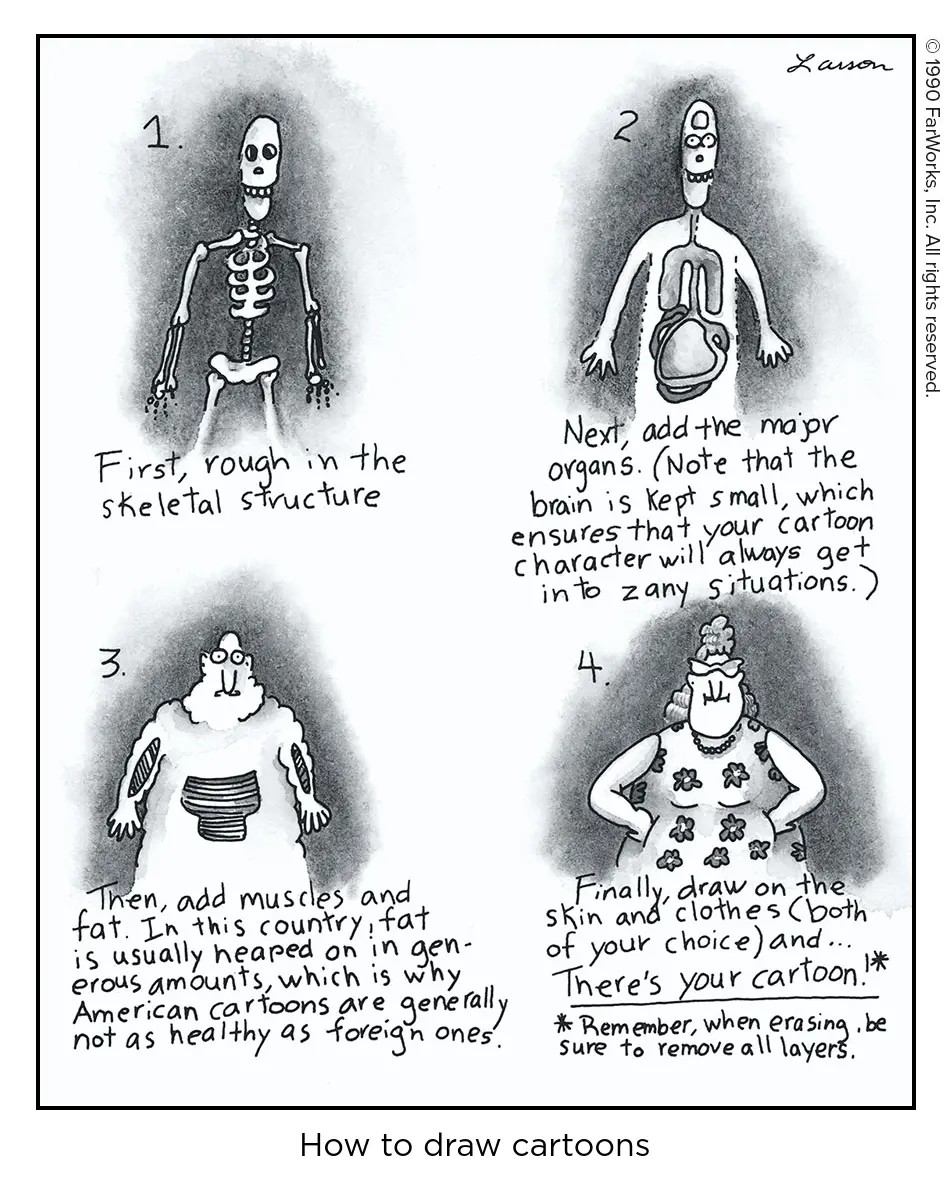 Larson
1.
First, rough in the
skeletal structure
2
Next, add the major
organs. (Note that the
brain is kept small, which
ensures that your cartoon
character will always get
into zany situations.)
3.
Then, add muscles and
fat. In this country, fat
is usually heaped on in gen-
erous amounts, which is why
American cartoons are generally
not as healthy as foreign ones.
4.
Finally, draw on the
skin and clothes (both
of your choice) and...
There's your cartoon!*
* Remember, when erasing, be
sure to remove all layers.
© 1990 FarWorks, Inc. All rights reserved.
How to draw cartoons